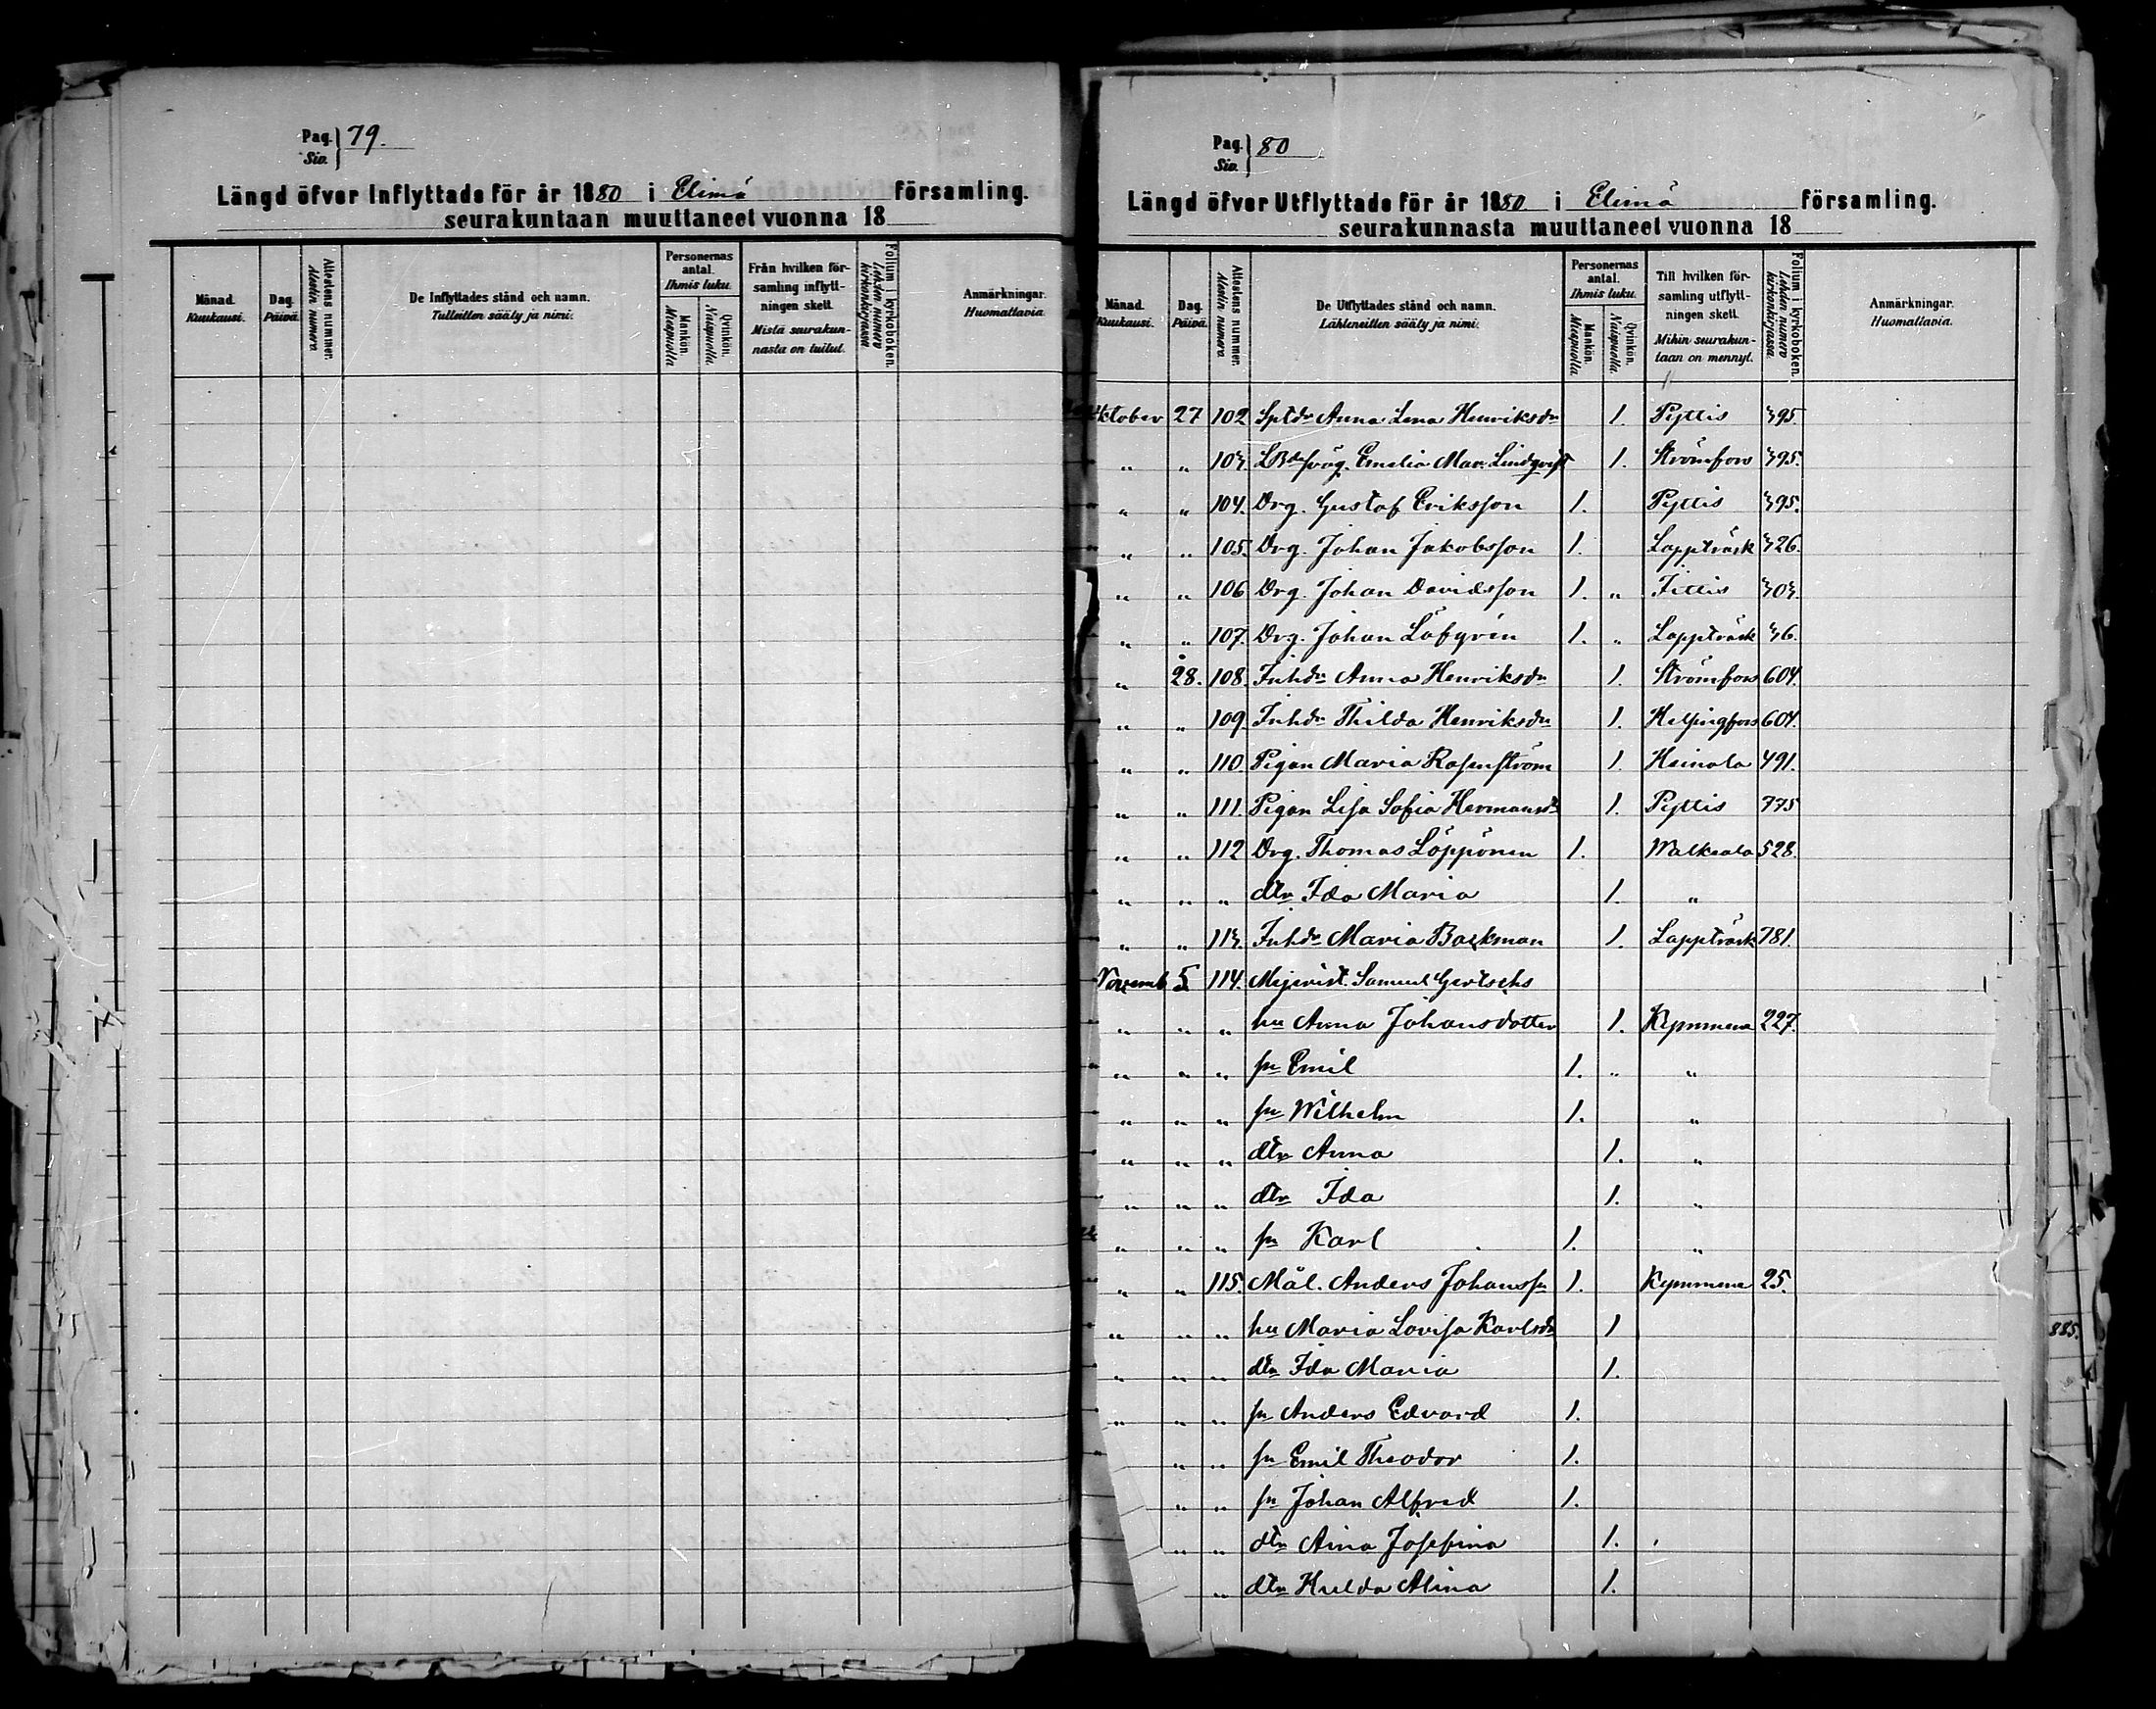 Pag. 79.
Siv.
Längd öfver Inflyttade för år 1880 i Elimä församling.
seurakuntaan muuttaneet vuonna 18
Månad. Kuukausi.
Dag. Päivä.
Attestens nummer. Alestin numero.
De Inflyttades stånd och namn. Tulleitten sääty ja nimi.
Personernas antal. Ihmis luku.
Mankön. Miespuolia
Qvinkön. Naispuolia.
Från hvilken församling inflyttningen skett. Mistä seurakunnasta on tullut.
Folium i kyrkoboken. Lehden numero kirkonkirjassa
Anmärkningar. Huomattavia
Pag. 80
Siv.
Längd öfver Utflyttade för år 1880 i Elimä församling.
seurakunnasta muuttaneet vuonna 18
Månad. Kuukausi.
Dag. Päivä.
Attestens nummer. Alestin numero.
De Utflyttades stånd och namn. Lähteneitten sääty ja nimi.
Personernas antal. Ihmis luku.
Mankön. Miespuolia.
Qvinkön. Naispuolia.
Till hvilken församling utflyttningen skett. Mihin seurakuntaan on mennyt.
Folium i kyrkoboken. Lehden numero kirkonkirjassa.
Anmärkningar. Huomattavia.
ktober 27 102 Sptdr Anna Lena Henriksdr 1. Pyttis 395.
" " 103. Emelia Mar. Lindqvist 1. Strömfors 395.
" " 104. Drg. Gustaf Eriksson 1. Pyttis 395.
" " 105. Drg. Johan Jakobsson 1. Lappträsk 326.
" " 106 Drg. Johan Davidsson 1. " Fittis 303.
" " 107. Drg. Johan Löfgrén 1. " Lappträsk 36.
" 28. 108. Inhdr Anna Henriksdr 1. Strömfors 604.
" " 109. Inhdr Thilda Henriksdr 1. Helsingfors 604.
" " 110. Pigan Maria Rosenström 1. Heinola 491.
" " 111. Pigan Lisa Sofia Hermansdr 1. Pyttis 775
" " 112 Drg. Thomas Löppönen 1. Walkeala 528.
" " " dtr Ida Maria 1. "
" " 113. Inhdr Maria Backman 1. Lappträsk 781.
Novemb 5 114. Mejerist. Samuel Gertschs
" " " hu Anna Johansdotter 1. Kymmene 227.
" " " sn Emil 1. " "
" " " sn Wilhelm 1. "
" " " dtr Anna 1. "
" " " dtr Ida 1. "
" " " sn Karl 1. "
" " 115. Mål. Anders Johanssn 1. Kymmene 25.
" " " hu Maria Lovisa Karlsdr 1
" " " dtr Ida Maria 1.
" " " sn Anders Edvard 1.
" " sn Emil Theodor 1.
" " sn Johan Alfred 1.
" " dtr Aina Josefina 1.
" dtr Hulda Alina 1.
885.